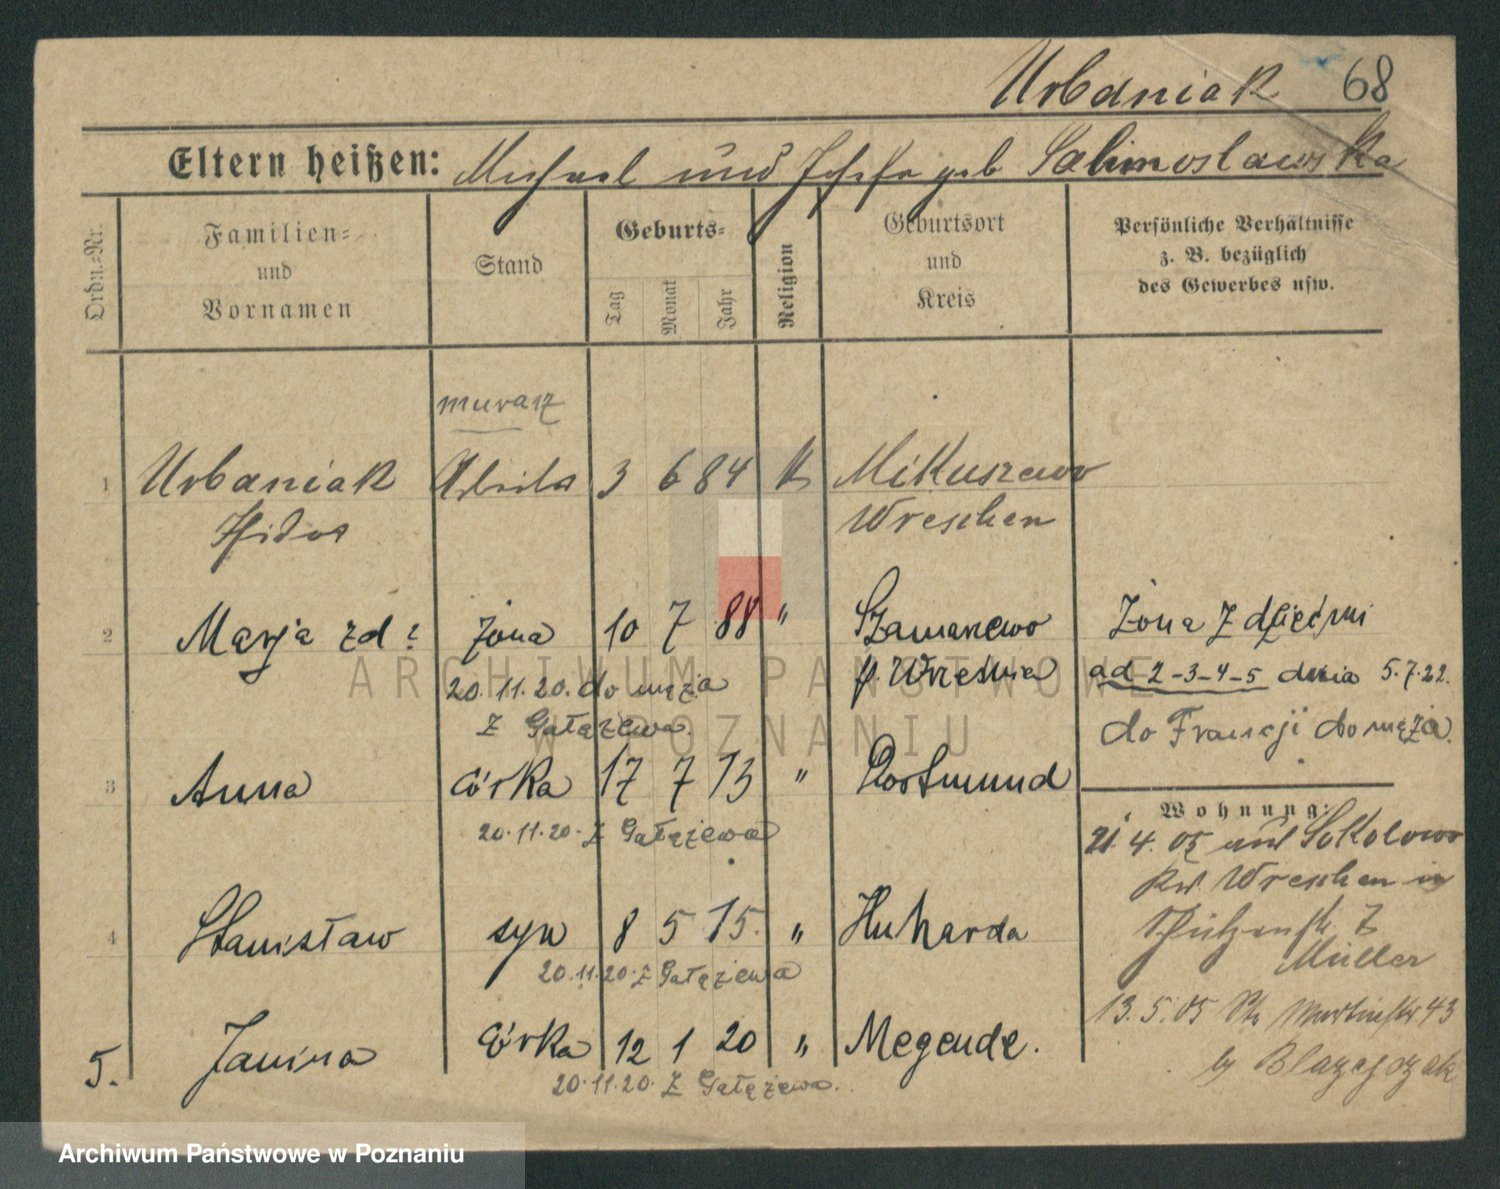 Urbaniak 68
Eltern heißen: Michael und Josefa geb
Ordn.-Nr.
Familien- und Vornamen
Stand
Geburts-
Tag
Monat
Jahr
Religion
Geburtsort und Kreis
Persönliche Verhältnisse z. B. bezüglich des Gewerbes usw.
murarz
1 Urbaniak 3 6 84 k Mikuszewo
Isidor Wreschen
2 Marja zd ? żona 10 7 88 " Szamarzewo
p. Września
20.11.20. do męża
z Gałązewa.
Żona z dziećmi
ad 2-3-4-5 dnia 5.7.22.
do Francji do męża.
3 Anna córka 17 7 13 " Dortmund
20.11.20. z Gałązewa
Wohnung:
21.4.05 aus Sokolowo
Kr. Wreschen in
Schützenstr. 7
Müller
4 Stanisław syn 8 5 15. "
20.11.20. z Gałązewa
13.5.05 St. Martinstr. 43
by Blazejczak
5. Janina córka 12 1 20 " Megende.
20.11.20. z Gałązewa.
ARCHIWUM PAŃSTWOWE
W POZNANIU
Archiwum Państwowe w Poznaniu